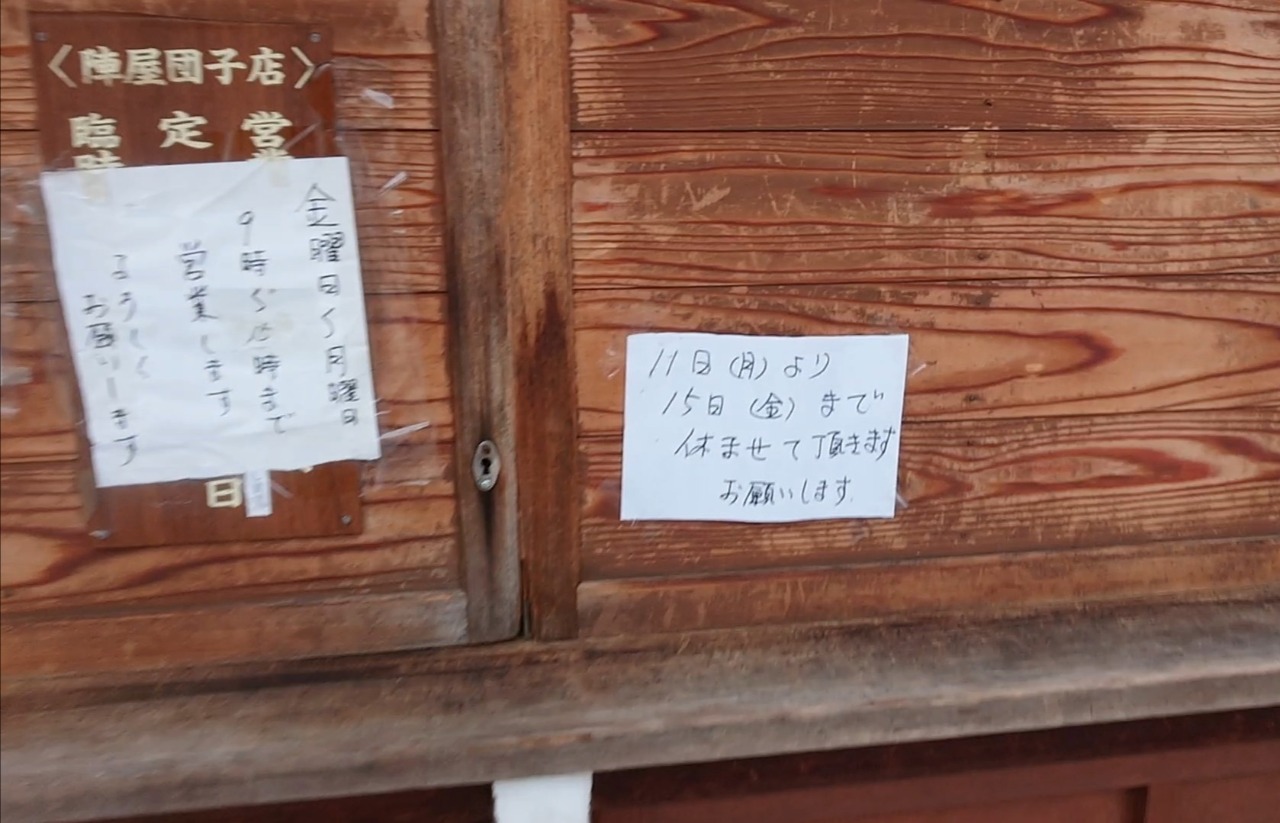 〈陣屋団子店〉
営業
定
臨時
日
金曜日〜月曜日
9時〜15時まで
営業します
よろしく
お願いします
11日(月)より
15日(金)まで
休ませて頂きます
お願いします